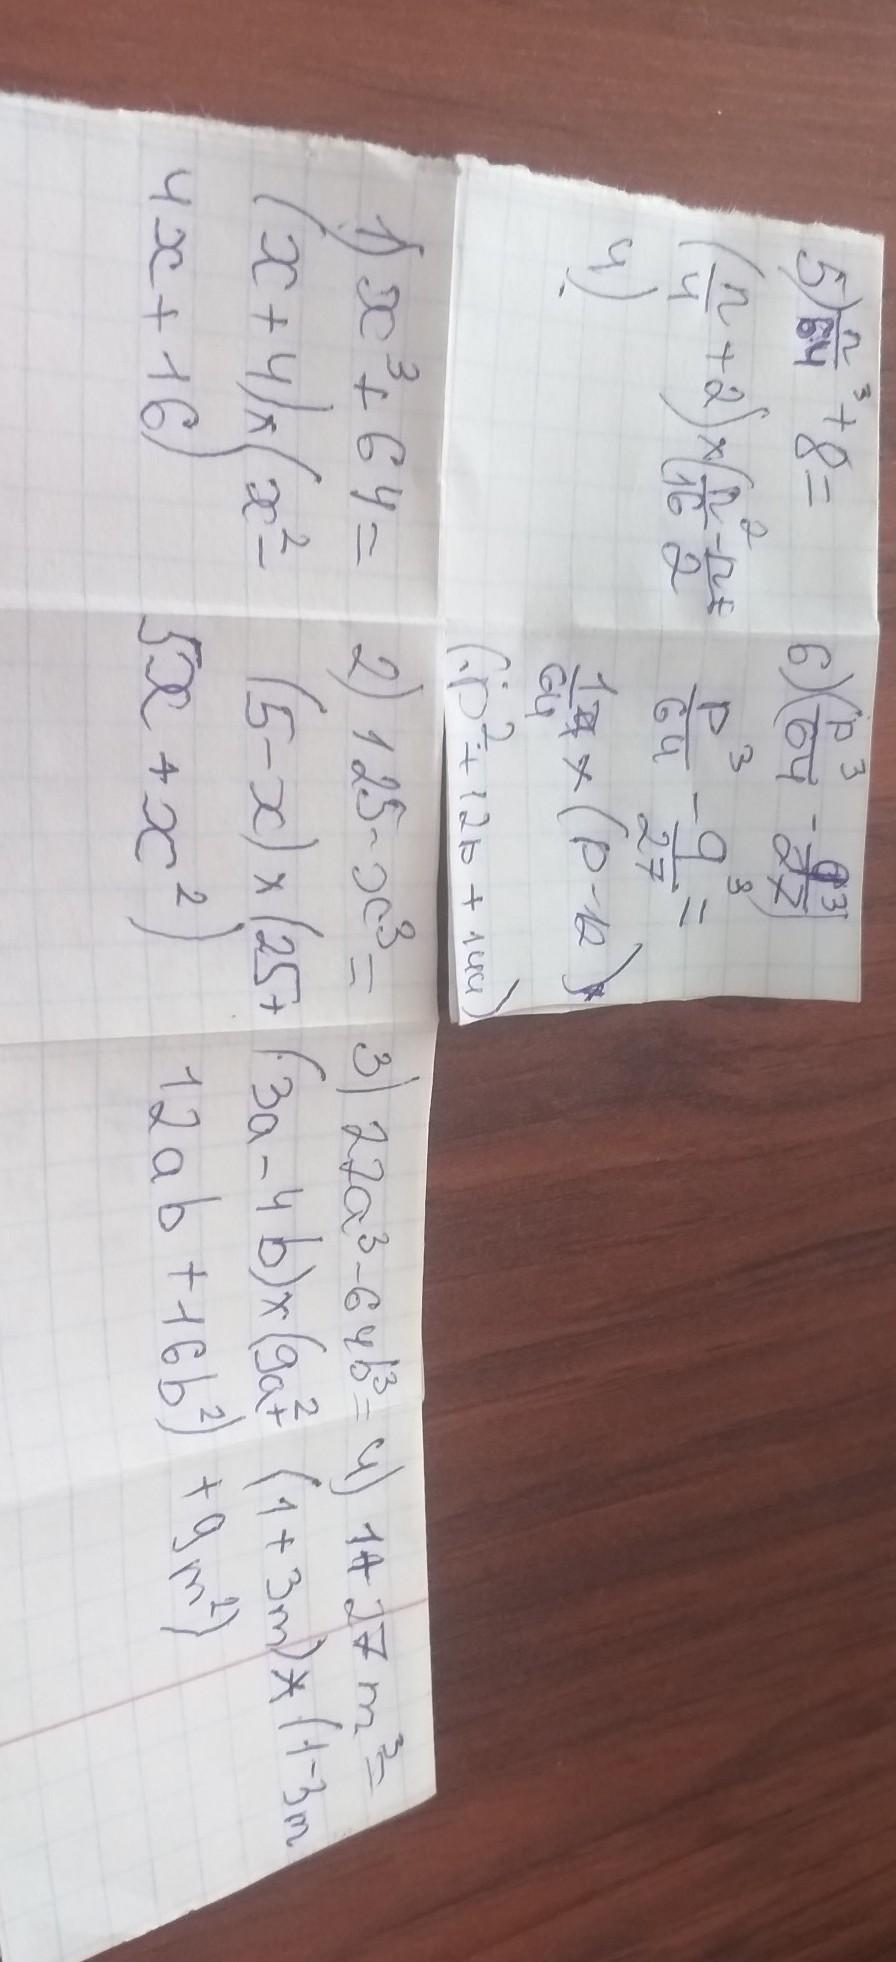 5) n³/64 + 8 =
(n/4 + 2) × (n²/16 - n/2 +
4)
6) (p³/64 - q³/27)
p³/64 - q³/27 =
1/64 × (p - 12) ×
(p² + 12p + 144)
1) x³ + 64 =
(x + 4) × (x² -
4x + 16)
2) 125 - x³ =
(5 - x) × (25 +
5x + x²)
3) 27a³ - 64b³ =
(3a - 4b) × (9a² +
12ab + 16b²)
4) 1 + 27m³ =
(1 + 3m) × (1 - 3m
+ 9m²)